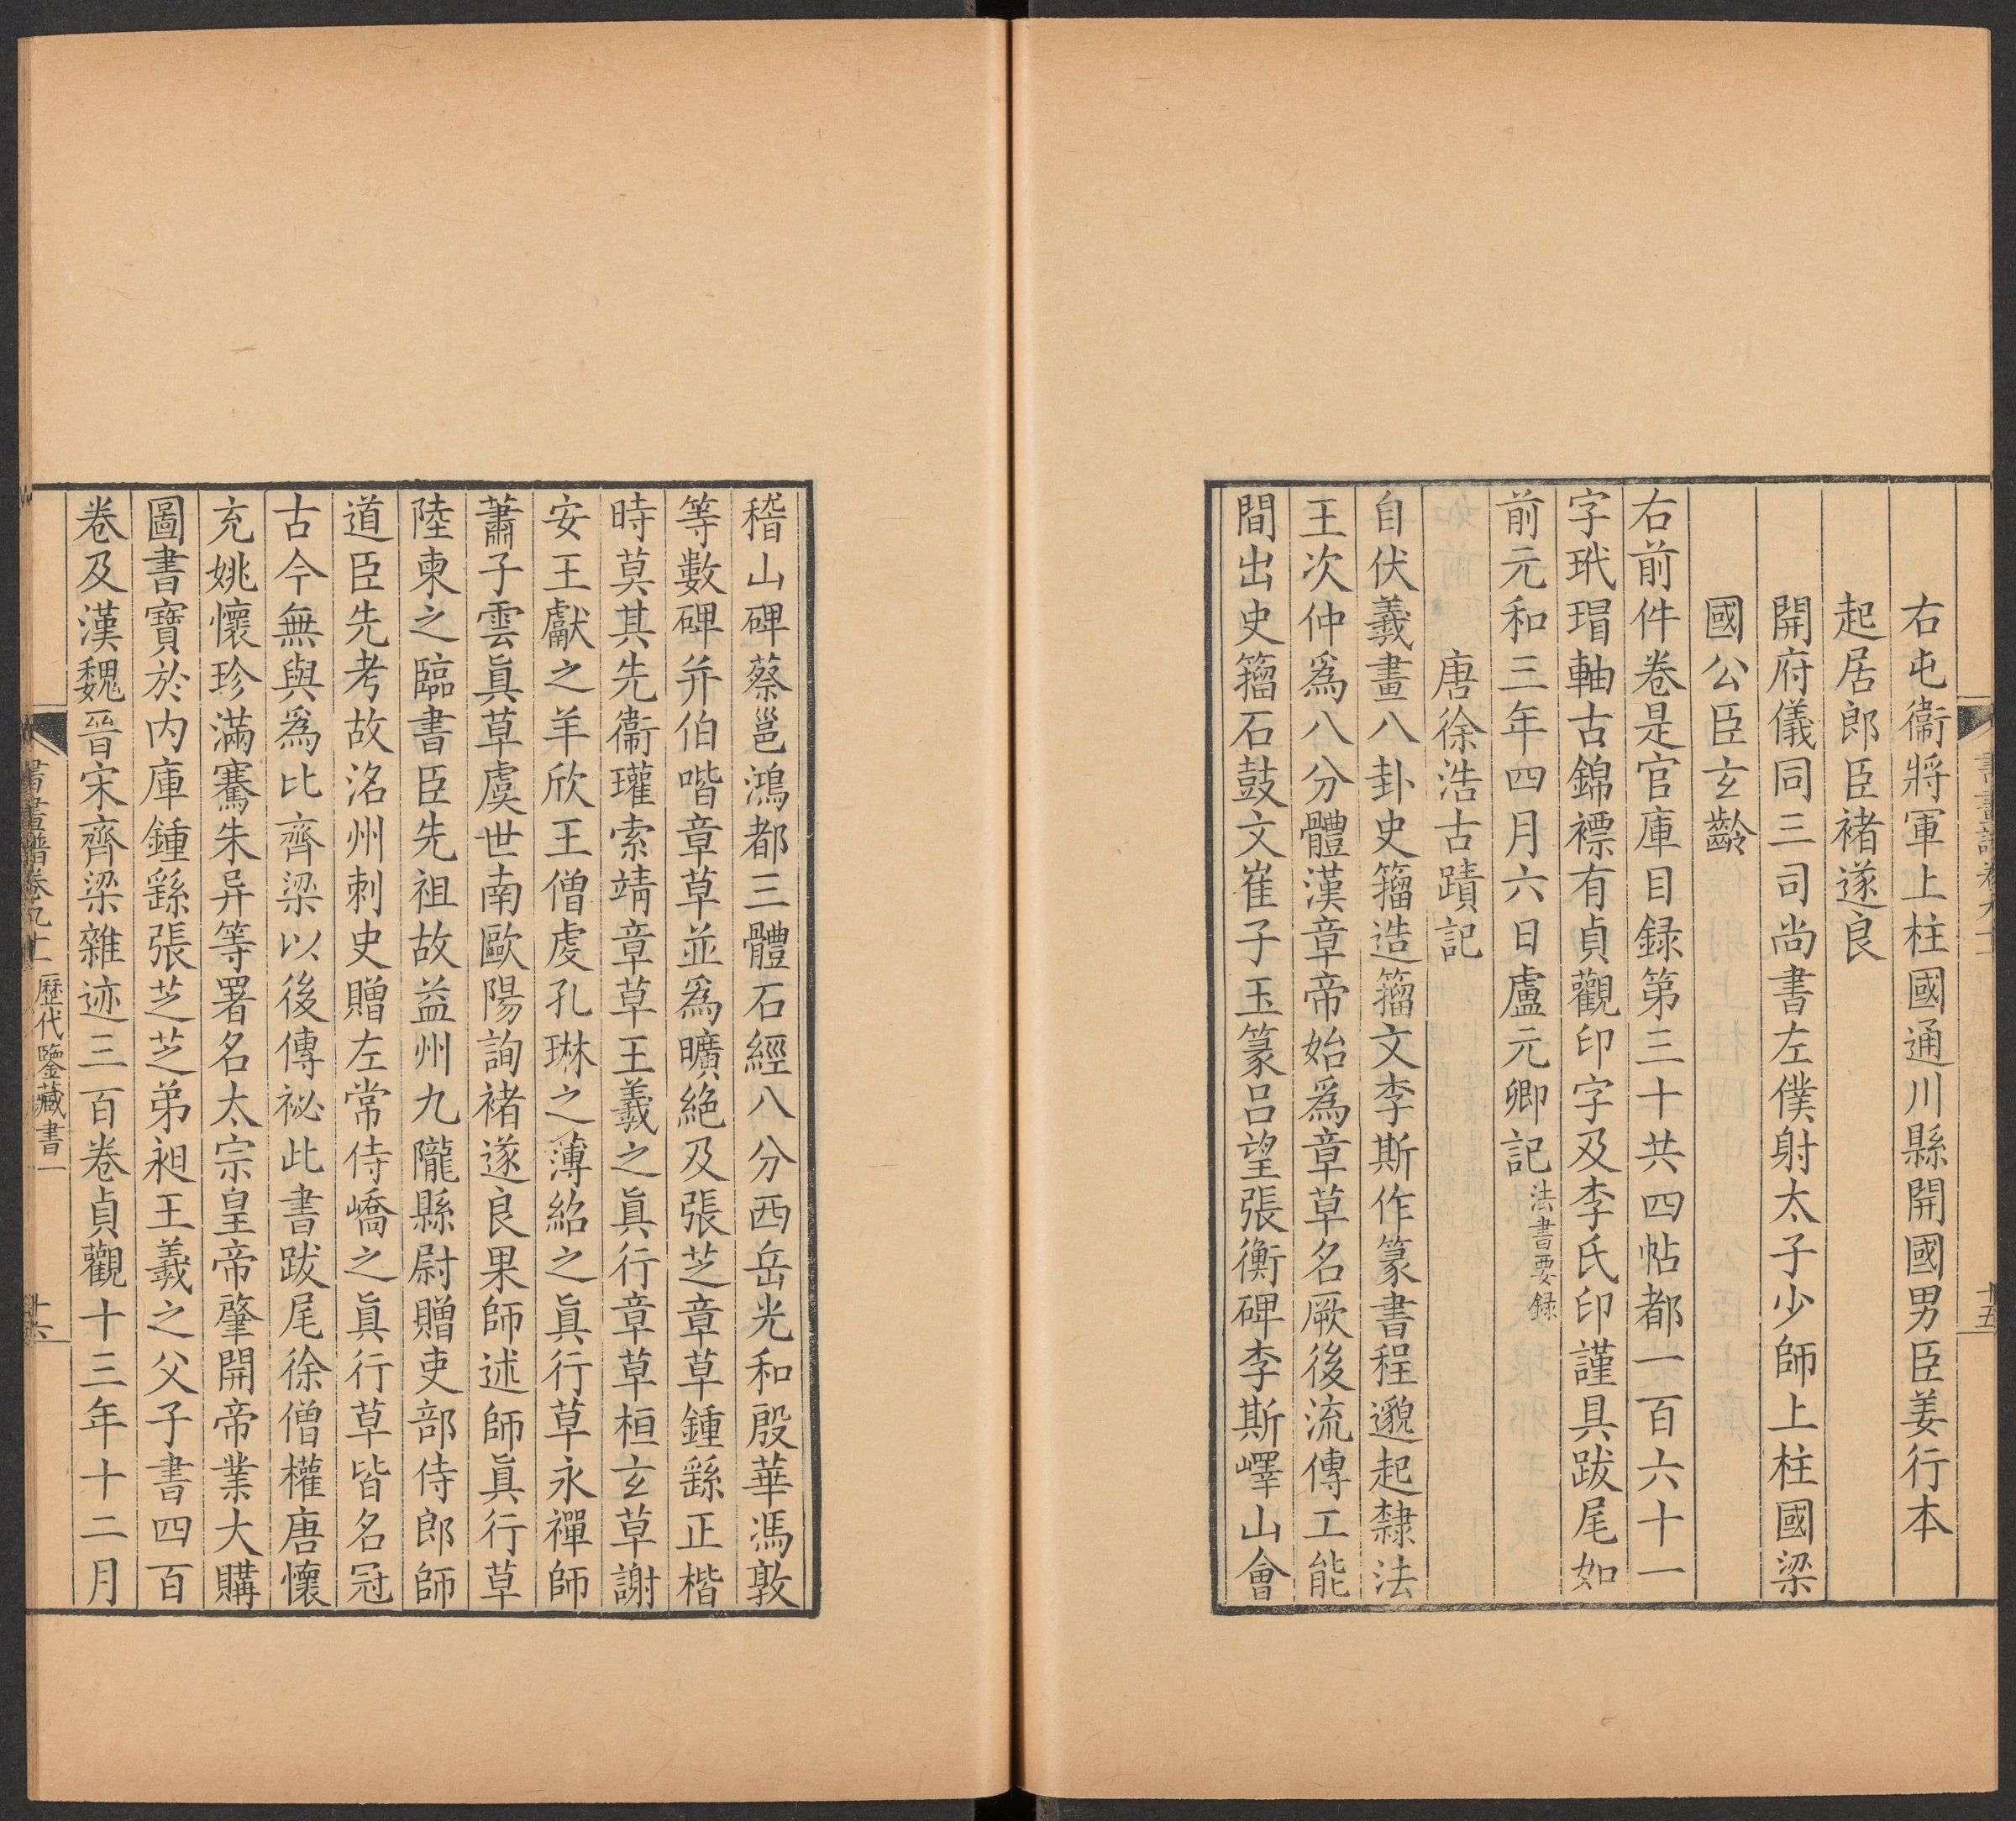 右屯衞將軍上柱國通川縣開國男臣姜行本
起居郎臣褚遂良
開府儀同三司尚書左僕射太子少師上柱國梁
國公臣玄齡
右前件卷是官庫目録第三十共四帖都一百六十一
字玳瑁軸古錦褾有貞觀印字及李氏印謹具跋尾如
前元和三年四月六日盧元卿記法書要録
唐徐浩古蹟記
自伏羲畫八卦史籀造籀文李斯作篆書程邈起隸法
王次仲爲八分體漢章帝始爲章草名厥後流傳工能
間出史籀石鼓文崔子玉篆呂望張衡碑李斯嶧山會
稽山碑蔡邕鴻都三體石經八分西岳光和殷華馮敦
等數碑并伯喈章草並爲曠絶及張芝章草鍾繇正楷
時莫其先衞瓘索靖章草王羲之眞行章草桓玄草謝
安王獻之羊欣王僧虔孔琳之薄紹之眞行草永禪師
蕭子雲眞草虞世南歐陽詢褚遂良果師述師眞行草
陸柬之臨書臣先祖故益州九隴縣尉贈吏部侍郎師
道臣先考故洺州刺史贈左常侍嶠之眞行草皆名冠
古今無與爲比齊梁以後傳祕此書跋尾徐僧權唐懷
充姚懷珍滿騫朱异等署名太宗皇帝肇開帝業大購
圖書寶於内庫鍾繇張芝芝弟昶王羲之父子書四百
卷及漢魏晉宋齊梁雜迹三百卷貞觀十三年十二月
書畫譜卷九十一 歷代鑒藏書一
十六